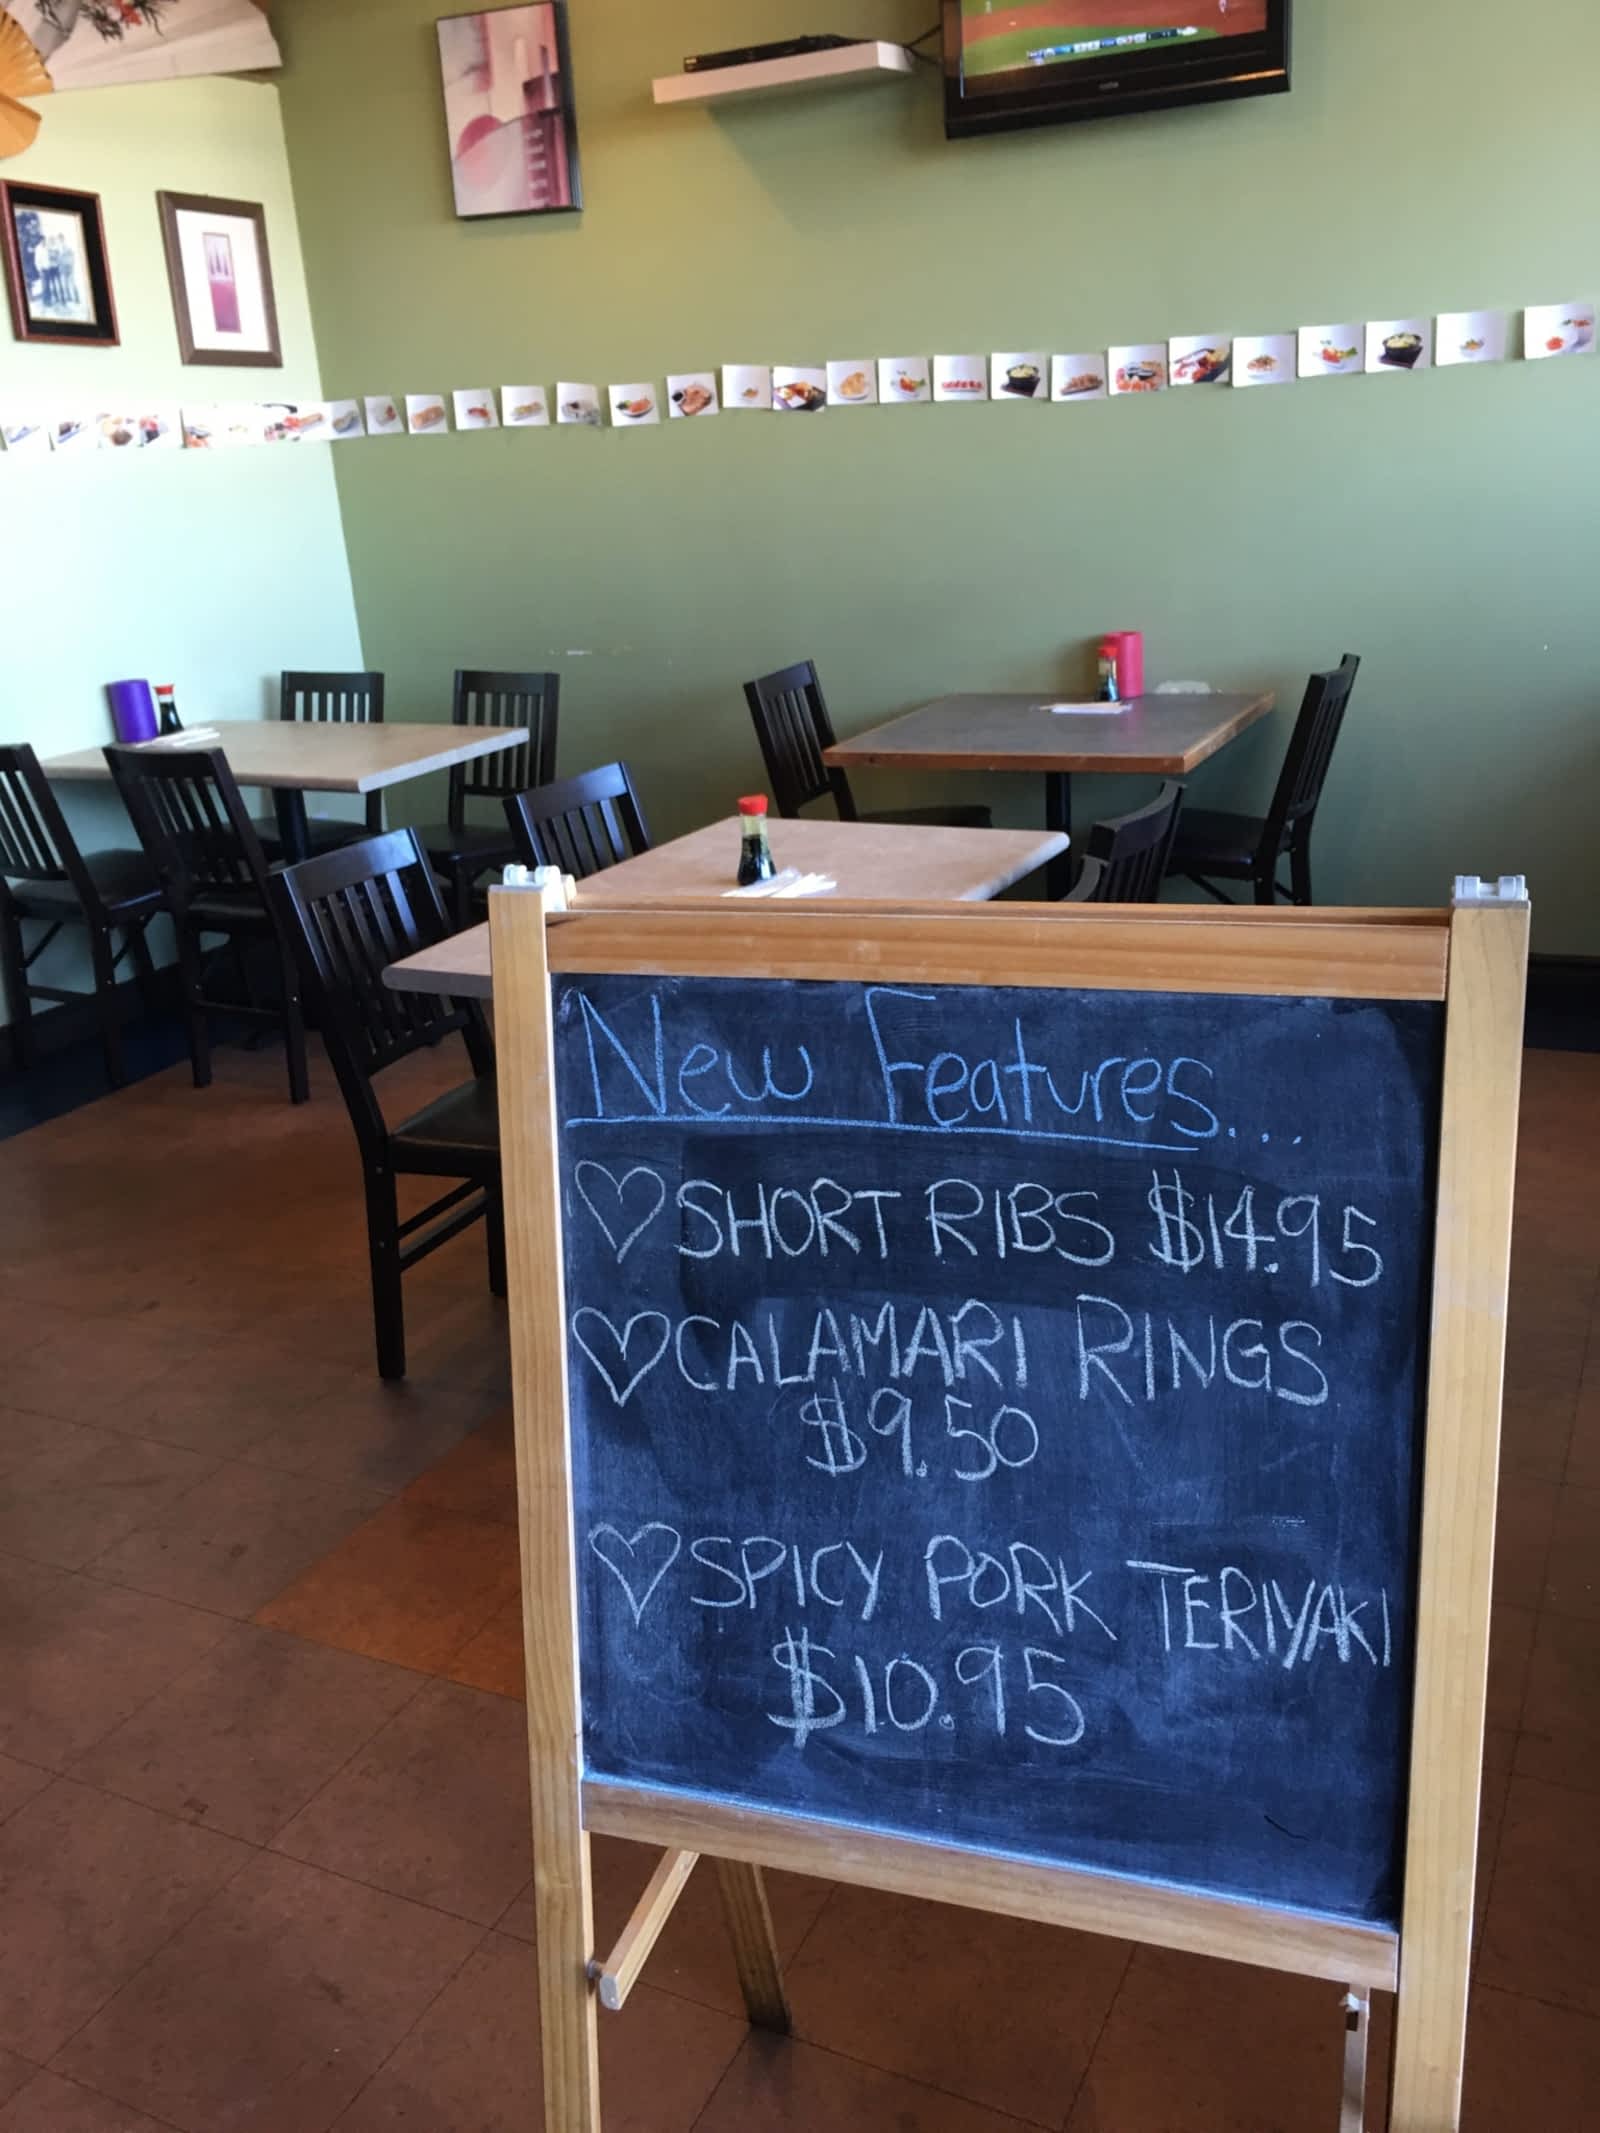 New Features...
♡ SHORT RIBS $14.95
♡ CALAMARI RINGS
$9.50
♡ SPICY PORK TERIYAKI
$10.95